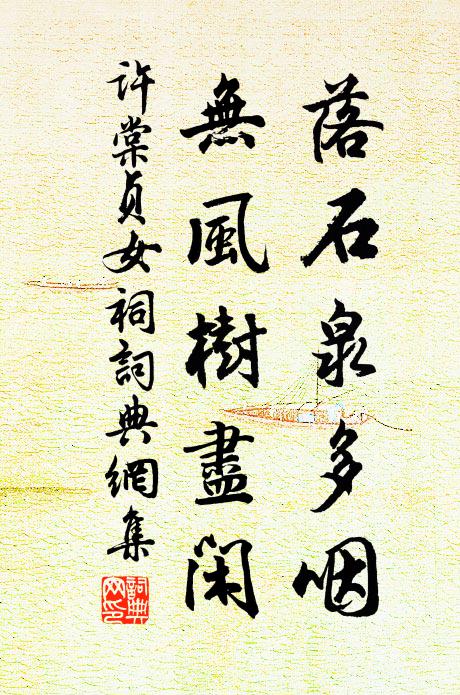 落石泉多咽
無風樹盡閑
許棠貞女祠詞典網集
詞典網印